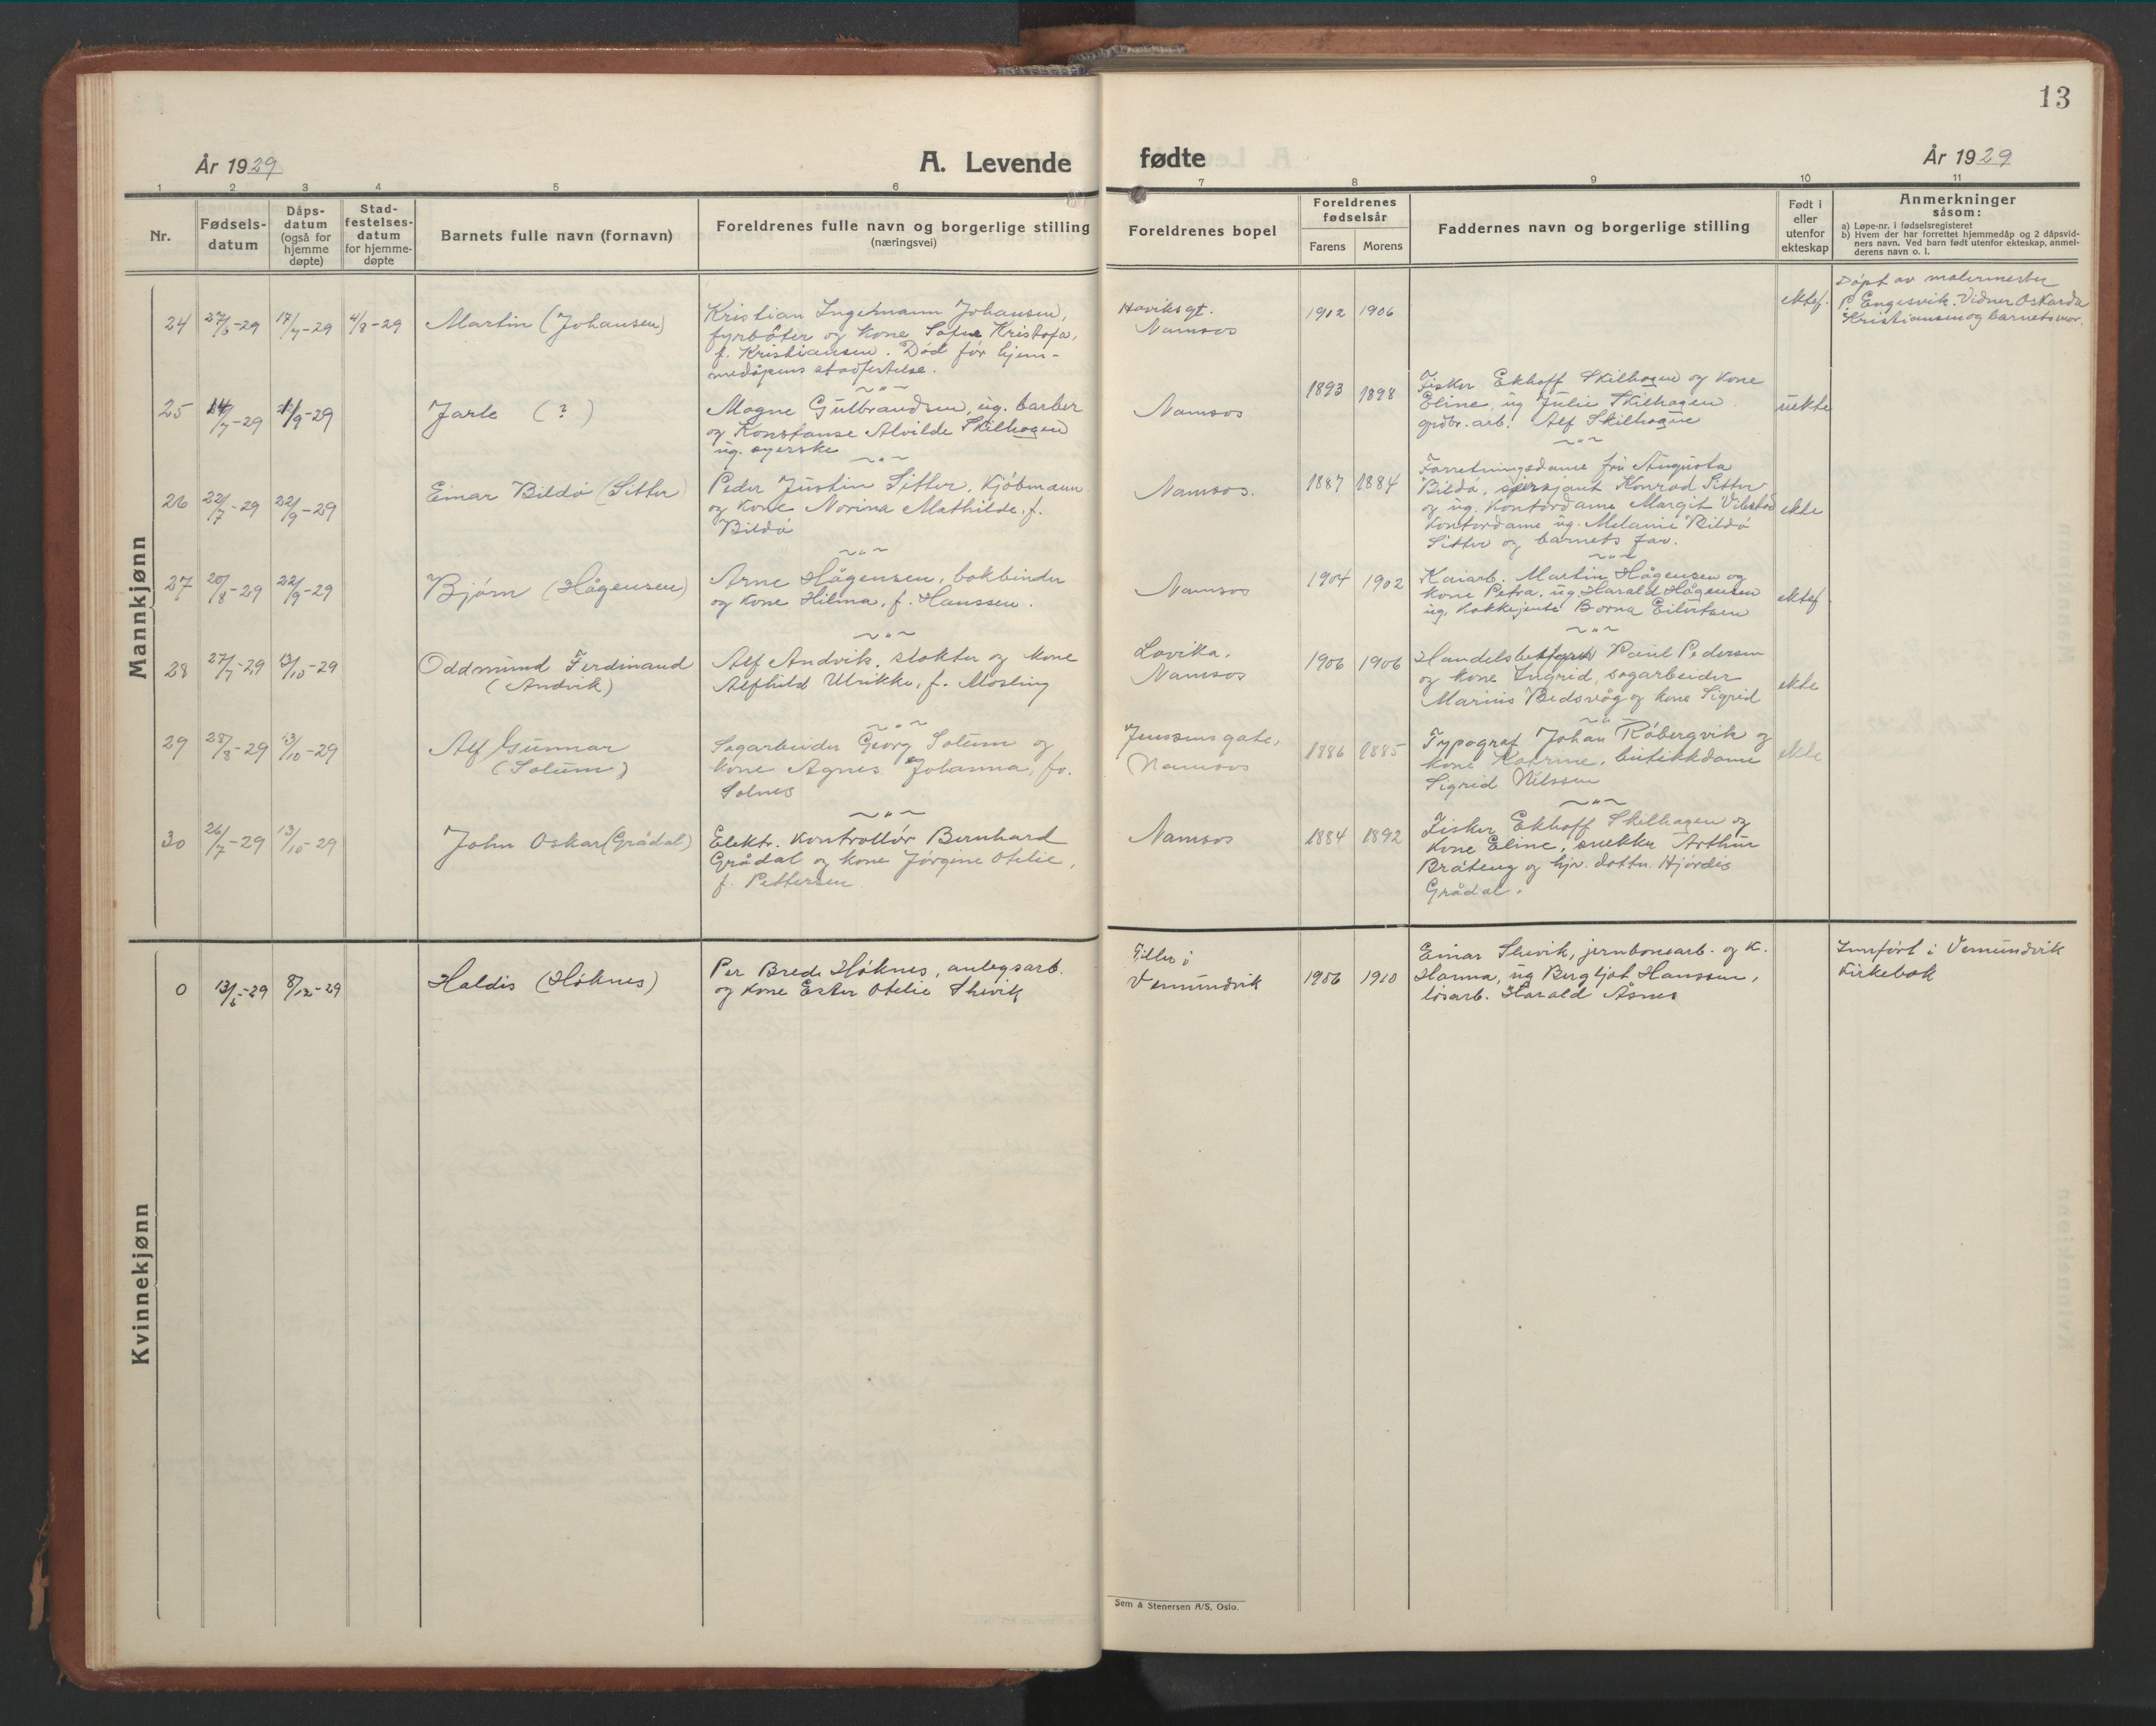 13
År 1929
A. Levende
fødte
År 1929
1 2 3 4 5 6 7 8 9 10 11
Nr.
Fødsels-
datum
Dåps-
datum
(også for
hjemme
døpte)
Stad-
festelses-
datum
for hjemme-
døpte
Barnets fulle navn (fornavn)
Foreldrenes fulle navn og borgerlige stilling
(næringsvei)
Foreldrenes bopel
Foreldrenes
fødselsår
Farens Morens
Faddernes navn og borgerlige stilling
Født i
eller
utenfor
ekteskap
Anmerkninger
såsom:
a) Løpe-nr. i fødselsregisteret
b) Hvem der har forrettet hjemmedåp og 2 dåpsvid-
ners navn. Ved barn født utenfor ekteskap, anmel-
derens navn o. l.
Mannkjønn
24 -29 17/7-29 4/8-29
Martin (Johansen)
Kristian Ingemann Johansen,
fyrbøter og kone Kristofa,
f. Kristiansen. Død før hjem-
medåpens stadfestelse.
Haviksgt.
Namsos
1902 1906
ektef.
Døpt av malermester
P. Engesvik. Vidner Oskarda
Kristiansen og barnets mor.
25 14/7-29 /9-29
Jarle (?)
Magne Gulbrandsen, ug. barber
og Konstanse Alvilde Skilhagen
ug. syerske
Namsos
1893 1898
Fisker Ekhoff Skilhagen og kone
Eline, ug Julie Skilhagen
grdbr. arb. Alf Skilhagen
uekte
26 22/7-29 22/9-29
Einar Bildø (Sitter)
Peder Justin Sitter, kjøbmann
og kone Norina Mathilde, f.
Bildø
Namsos.
1887 1884
Forretningsdame fru Augusta
Bildø, sersjant Konrad Sitter
og ug. kontordame Margit
kontordame ug. Melanie Bildø
Sitter og barnets far.
ekte
27 20/8-29 22/9-29
Bjørn (Hågensen)
Arne Hågensen, bokbinder
og kone Hilma, f. Hanssen.
Namsos
1904 1902
Kaiarb. Martin Hågensen og
kone Petra, ug. Harald Hågensen
ug. kokkejente Borna Eilertsen
ektef.
28 27/7-29 13/10-29
Oddmund Ferdinand
(Andvik)
Alf Andvik, slakter og kone
Alfhild Ulrikke, f. Møsling
Lovika,
Namsos
1906 1906
Handelsbestyrer Paul Pedersen
og kone Ingrid, sagarbeider
Marius Bedsvåg og kone Sigrid
ekte
29 28/8-29 13/10-29
Alf Gunnar
(Solum)
Sagarbeider Georg Solum og
kone Agnes Johanna, fø.
Solnes
Jenssens gate,
Namsos
1886 1885
Typograf Johan Røbergvik og
kone Katrine, butikkdame
Sigrid Nilssen
ekte
30 26/7-29 13/10-29
John Oskar (Grådal)
Elektr. kontrollør Bernhard
Grådal og kone Jørgine Otelie,
f. Pettersen
Namsos
1884 1892
Fisker Ekhoff Skilhagen og
kone Eline, snekker Arthur
Bråteng og hjv. datter Hjørdis
Grådal.
Kvinnekjønn
0 13/6-29 8/12-29
Haldis (Høknes)
Per Brede Høknes, anlegsarb.
og kone Ester Otelie Skevik
Tiller i
Vemundvik
1906 1910
Einar Skevik, jernbanearb. og k.
Hanna, ug Bergljot Hanssen,
løsarb. Harald Åsnes
Innført i Vemundvik
kirkebok
Sem & Stenersen A/S, Oslo.